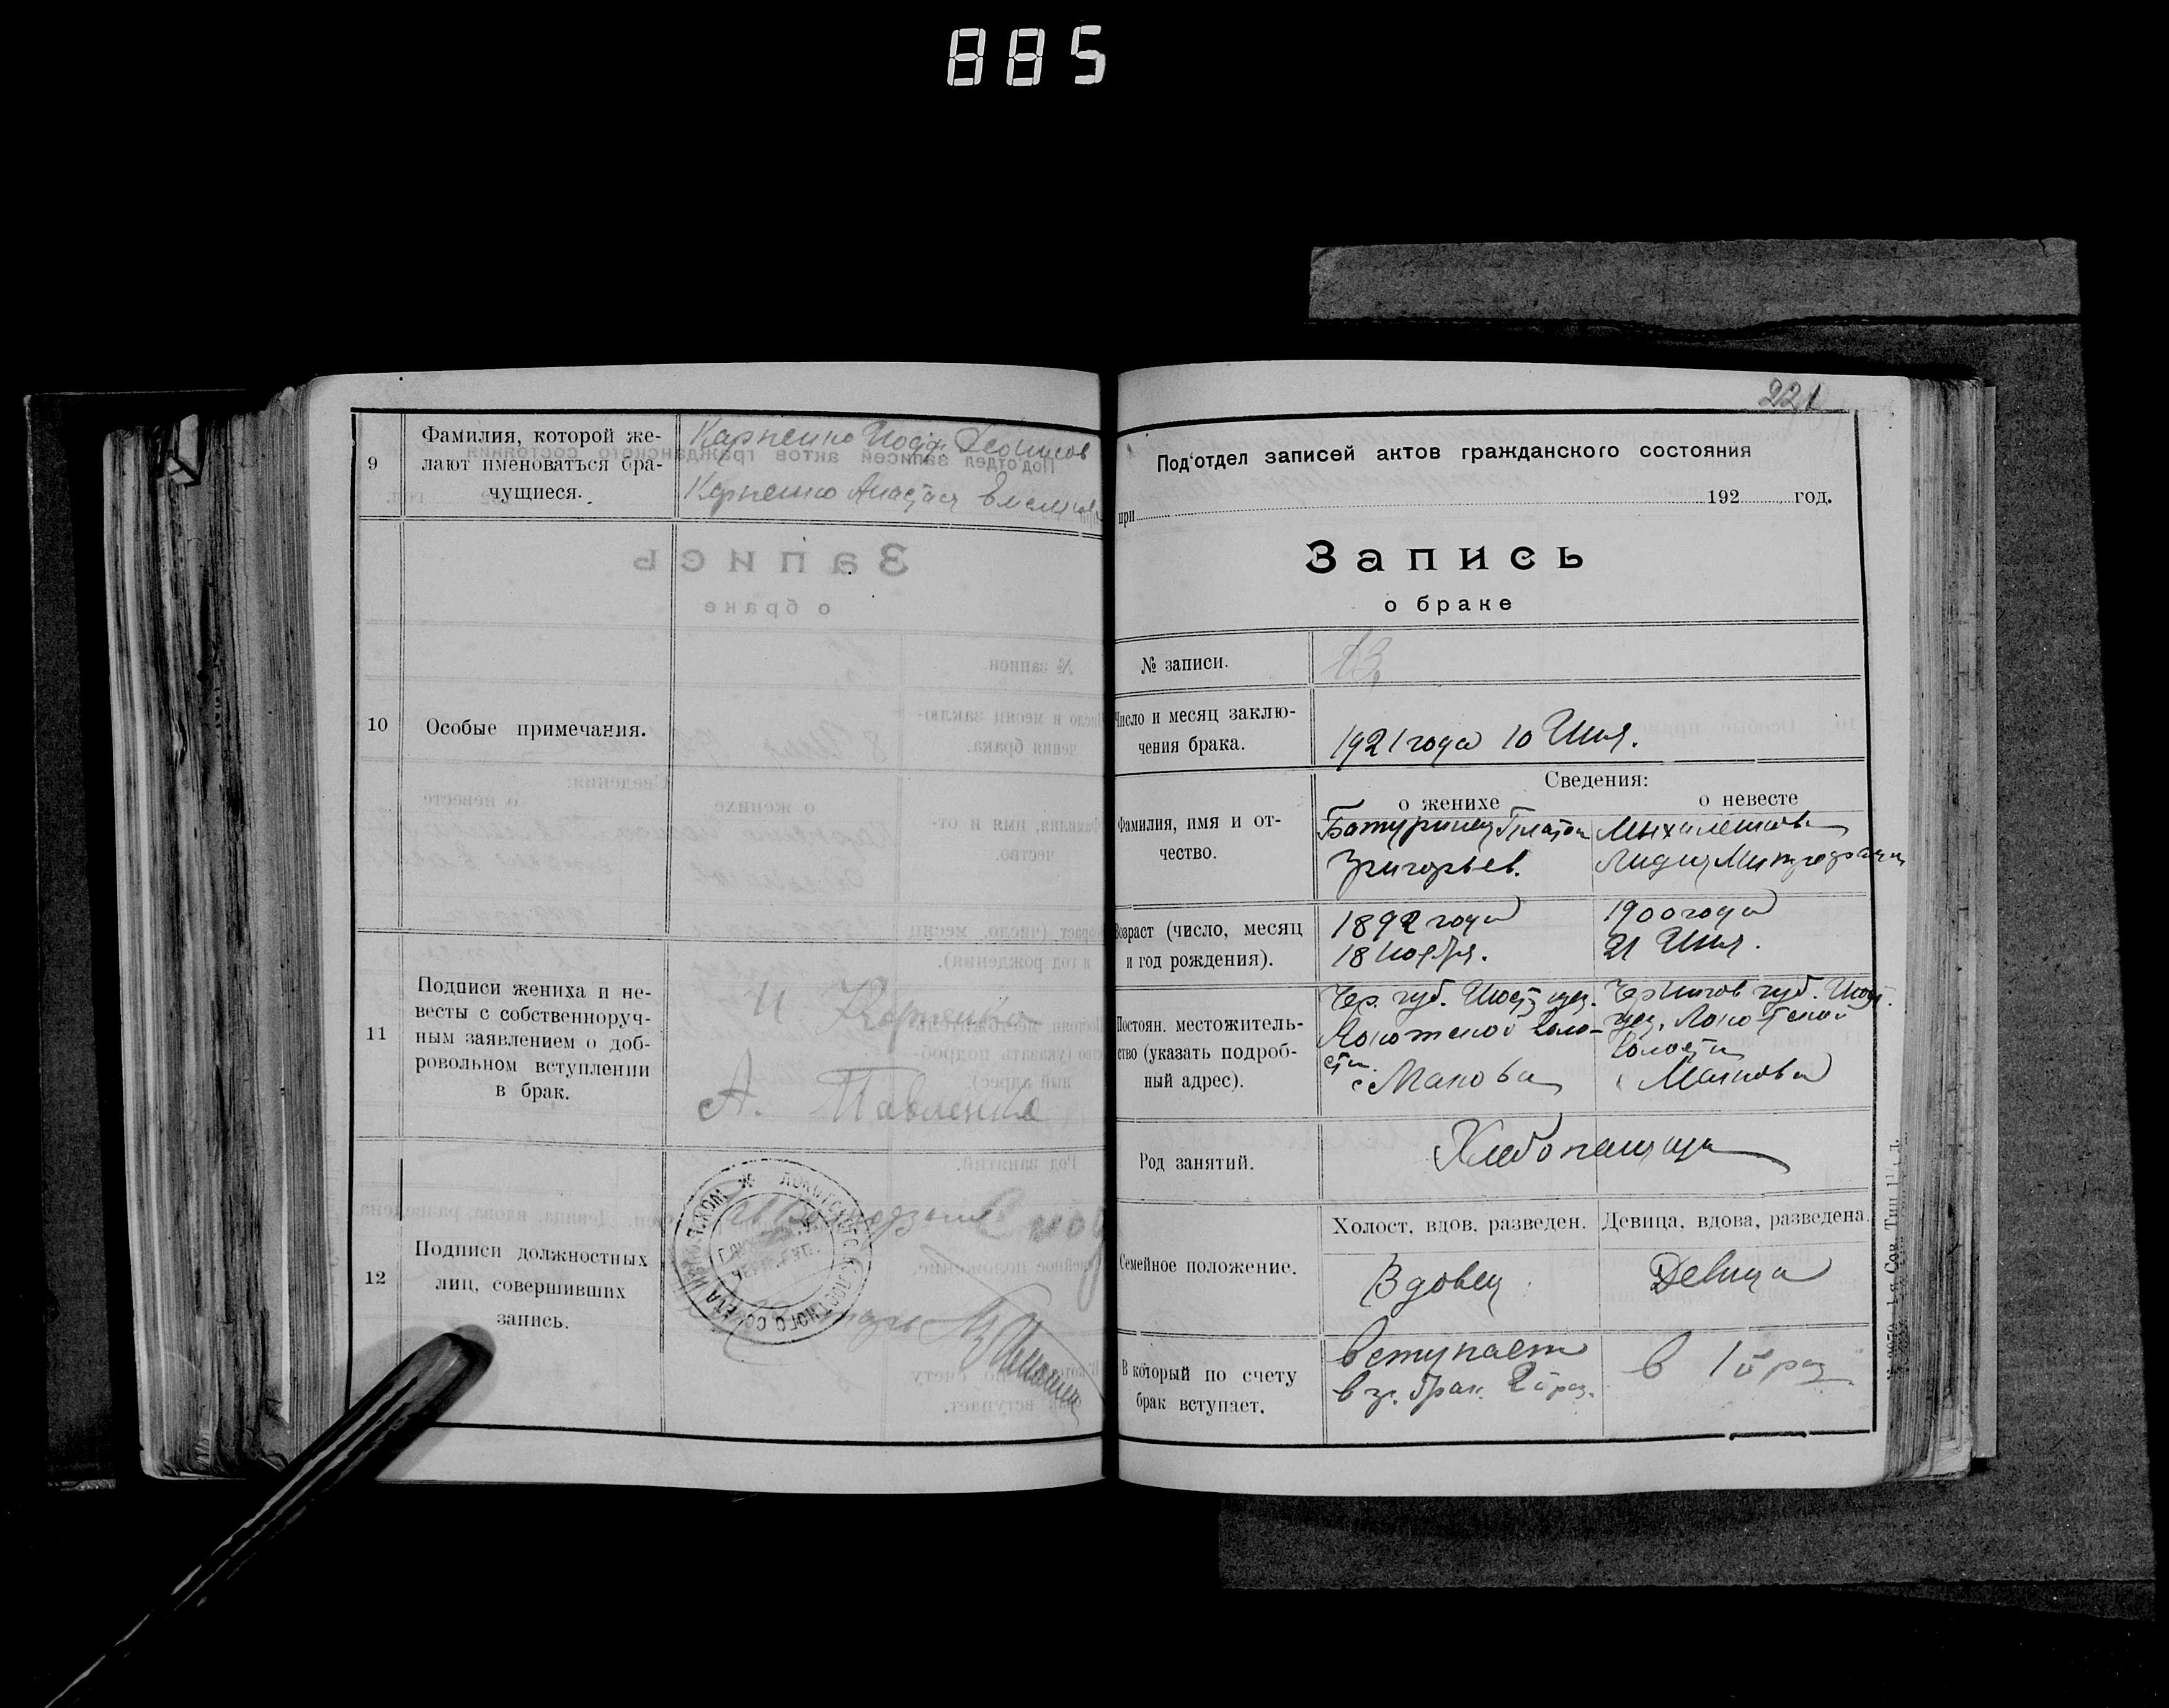 885
9
Фамилия, которой же-
лают именоваться бра-
чущиеся.
Карпенко
Карпенко
10
Особые примечания.
11
Подписи жениха и не-
весты с собственноруч-
ным заявлением о доб-
ровольном вступлении
в брак.
И Карпенко
А. Павленко
12
Подписи должностных
лиц, совершивших
запись.
221
Под'отдел записей актов гражданского состояния
при 192 год.
Запись
о браке
№ записи.
13
Число и месяц заклю-
чения брака.
1921 года 10
Сведения:
о женихе
о невесте
Фамилия, имя и от-
чество.
Батуринец Платон
Григорьев.
Лидия
Возраст (число, месяц
и год рождения).
1892 года
18 ноября.
1900 года
21
Постоян. местожитель-
ство (указать подроб-
ный адрес).
Чер. губ.
Локотской воло-
сти.
с Макова
Чернигов губ.
уез. Локотской
волости
с Макова
Род занятий.
Хлебопашца
Семейное положение.
Холост, вдов, разведен.
Девица, вдова, разведена.
Вдовец
Девица
В который по счету
брак вступает.
вступает
в гр. брак. 2й раз.
в 1й раз